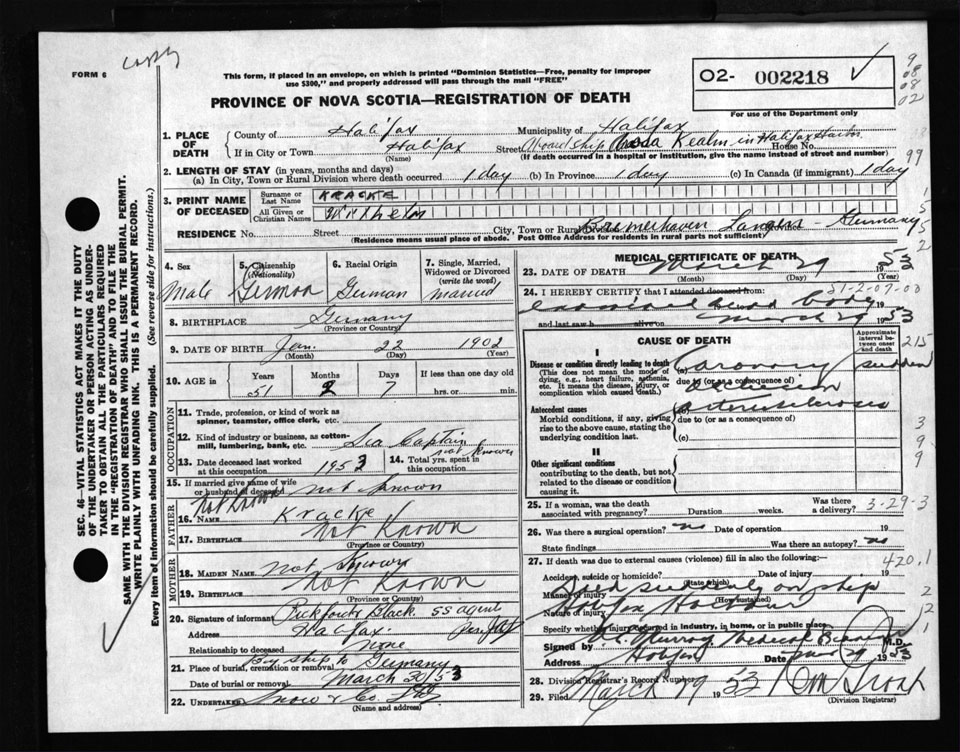 copy
FORM 6
This form, if placed in an envelope, on which is printed "Dominion Statistics—Free, penalty for improper
use $300," and properly addressed will pass through the mail "FREE"
O2- 002218 ✓
For use of the Department only
9
08
08
02
PROVINCE OF NOVA SCOTIA—REGISTRATION OF DEATH
1. PLACE OF DEATH
County of Halifax Municipality of Halifax
If in City or Town Halifax Street Aboard ship Realm in Halifax Harbor House No.
(Name) (If death occurred in a hospital or institution, give the name instead of street and number)
99
2. LENGTH OF STAY (in years, months and days)
(a) In City, Town or Rural Division where death occurred 1 day (b) In Province 1 day (c) In Canada (if immigrant) 1 day
3. PRINT NAME OF DECEASED
Surname or Last Name KRACKE
All Given or Christian Names Wilhelm
RESIDENCE No. Street City, Town or Bremerhaven - Germany
(Residence means usual place of abode. Post Office Address for residents in rural parts not sufficient)
SEC. 46—VITAL STATISTICS ACT MAKES IT THE DUTY
OF THE UNDERTAKER OR PERSON ACTING AS UNDER-
TAKER TO OBTAIN ALL THE PARTICULARS REQUIRED
IN THE "REGISTRATION OF DEATH" AND TO FILE THE
SAME WITH THE DIVISION REGISTRAR WHO SHALL ISSUE THE BURIAL PERMIT.
WRITE PLAINLY WITH UNFADING INK. THIS IS A PERMANENT RECORD.
Every item of information should be carefully supplied. (See reverse side for instructions.)
4. Sex Male
5. Citizenship (Nationality) German
6. Racial Origin German
7. Single, Married, Widowed or Divorced (write the word) married
8. BIRTHPLACE Germany
(Province or Country)
9. DATE OF BIRTH Jan. 22 1902
(Month) (Day) (Year)
10. AGE in Years Months Days If less than one day old
51 2 7 hrs. or min.
OCCUPATION
11. Trade, profession, or kind of work as
spinner, teamster, office clerk, etc.
12. Kind of industry or business, as cotton-
mill, lumbering, bank, etc. Sea Captain
13. Date deceased last worked at this occupation 1953
14. Total yrs. spent in this occupation not known
15. If married give name of wife
or husband of deceased not known
FATHER
16. Name not known Kracke
17. BIRTHPLACE Not Known
(Province or Country)
MOTHER
18. MAIDEN NAME Not Known
19. BIRTHPLACE Not Known
(Province or Country)
20. Signature of informant Pickford & Black SS agent
Address Halifax
Relationship to deceased None
21. Place of burial, cremation or removal By ship to Germany
Date of burial or removal March 30/53
22. UNDERTAKER Snow & Co. Ltd
(Name and address)
MEDICAL CERTIFICATE OF DEATH
23. DATE OF DEATH March 29 1953
(Month) (Day)
24. I HEREBY CERTIFY that I attended deceased from:
examined dead body 19
and last saw h alive on March 29 1953
CAUSE OF DEATH
Approximate interval between onset and death
I
Disease or condition directly leading to death
(This does not mean the mode of
dying, e.g., heart failure, asthenia,
etc. It means the disease, injury, or
complication which caused death.)
(a) Coronary sudden
due to (or as a consequence of) occlusion
Antecedent causes
Morbid conditions, if any, giving
rise to the above cause, stating the
underlying condition last.
(b) Arteriosclerosis
due to (or as a consequence of)
(c)
II
Other significant conditions
contributing to the death, but not
related to the disease or condition
causing it.
215
3
9
9
25. If a woman, was the death associated with pregnancy? Duration weeks. Was there a delivery? 3-29-3
26. Was there a surgical operation? no Date of operation 19
State findings Was there an autopsy? no
27. If death was due to external causes (violence) fill in also the following:
420.1
Accident, suicide or homicide? Date of injury 19
(State which)
Manner of injury Died suddenly on ship
(How sustained)
Nature of injury Halifax Harbour
Specify whether injury occurred in industry, in home, or in public place
Signed by Murray Medical M.D.
Address Halifax Date Mar 29 1953
28. Division Registrar's Record Number
29. Filed March 29 1953
(Division Registrar)